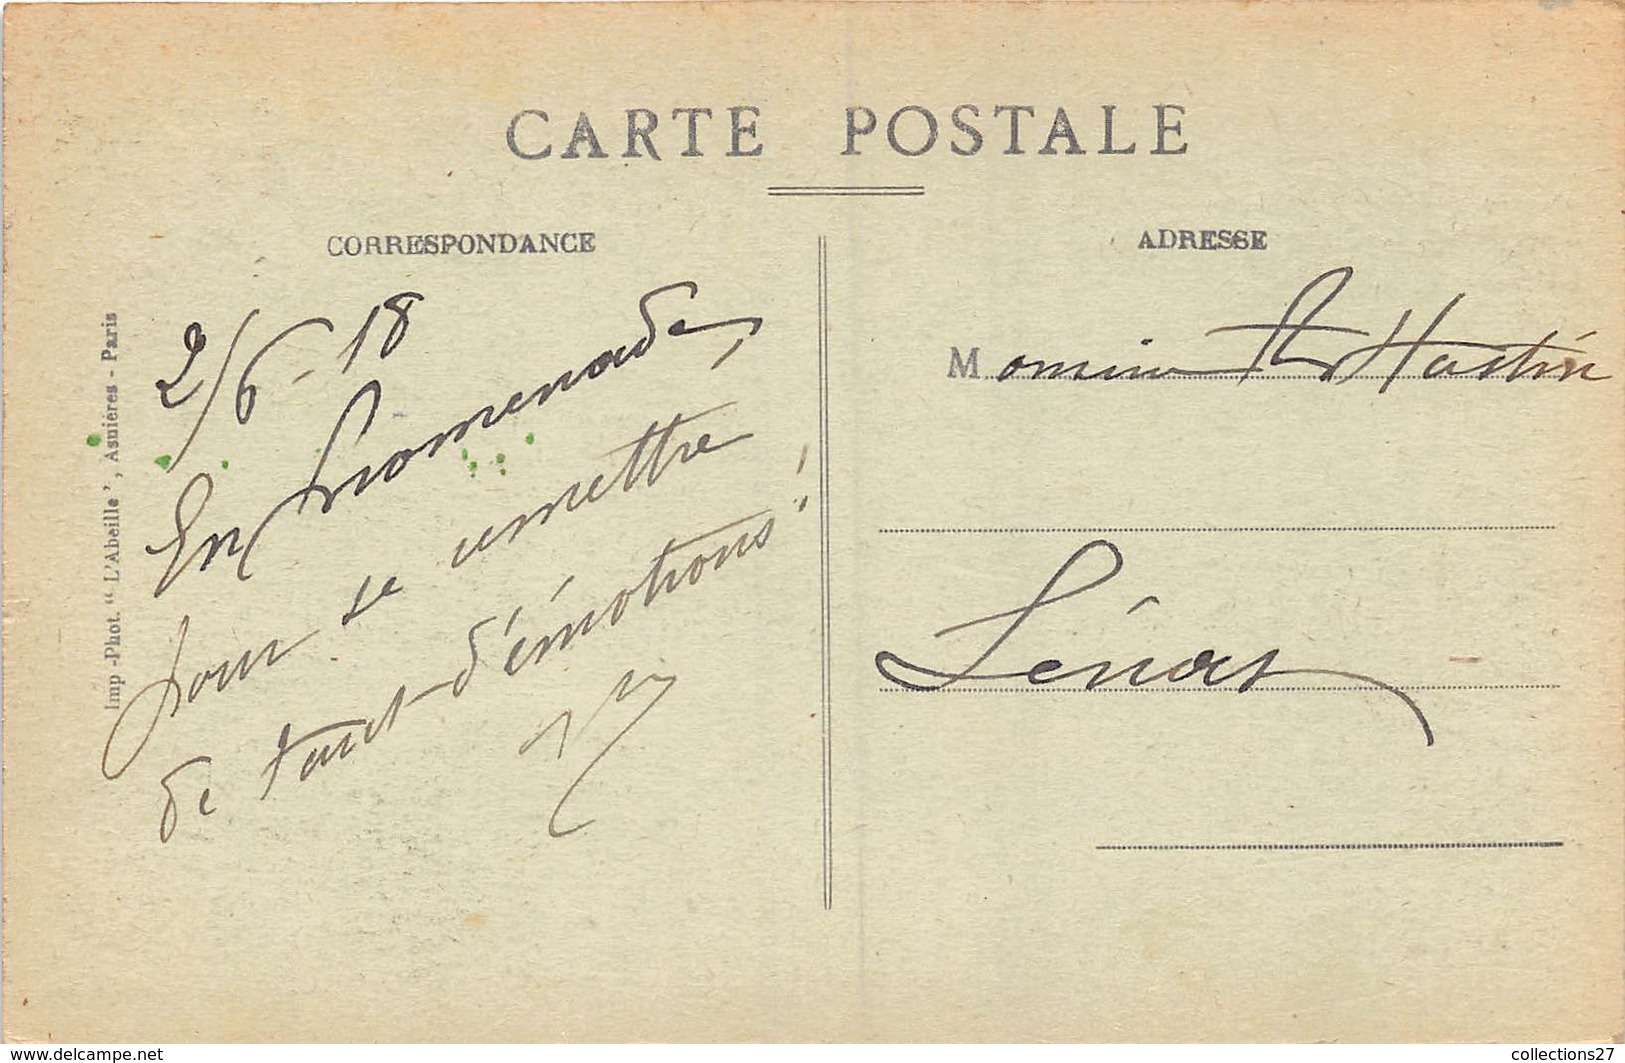 CARTE POSTALE
CORRESPONDANCE
ADRESSE
Imp-Phot. “ L'Abeille ’, Asnières - Paris
2/6-18
En promenade,
pour se remettre
de tant d'émotions!
Monsieur Martin
Sénas
www.delcampe.net
collections27